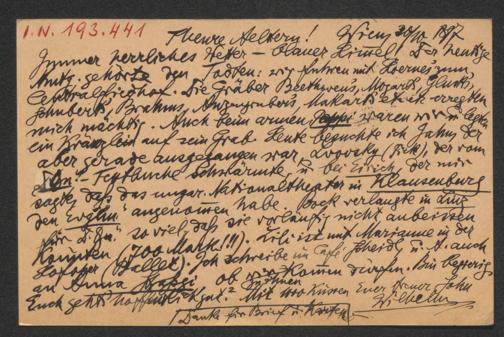 I.N. 193.441
Theure Aeltern! Wien, 30/10 1897
Immer herrliches Wetter – blauer Himel! Der heutige
Sontg. gehörte den Todten: wir fuhren mit Loewe's zum
Centralfriedhof. Die Gräber Beethovens, Mozarts, Glucks,
Schuberts, Brahms, Anzengrubers, Makarts etc. etc. erregten
mich mächtig. Auch beim armen Pepi waren wir u. legten
ein Kränzlein auf sein Grab. Heute besuchte ich Jahn, der
aber gerade ausgegangen war, Lvovsky der vom
u. bei Eirich, der mir
sagte, daß das ungar. Nationaltheater in Klausenburg
den Evglm. angenommen habe. Bock verlangte in Linz
für so viel, daß sie vorläufig nicht anbeissen
könnten (700 Mark!!!). Lili ist mit Marianne in der
Hofoper (Ballet). Ich schreibe im Café u. A. auch
an Anna ob wir kommen dürfen. Bin begierig
Euch geht's hoffentlich gut? Mit 1000 Küssen Euer treuer Sohn
Wilhelm
Danke für Brief u. Karten